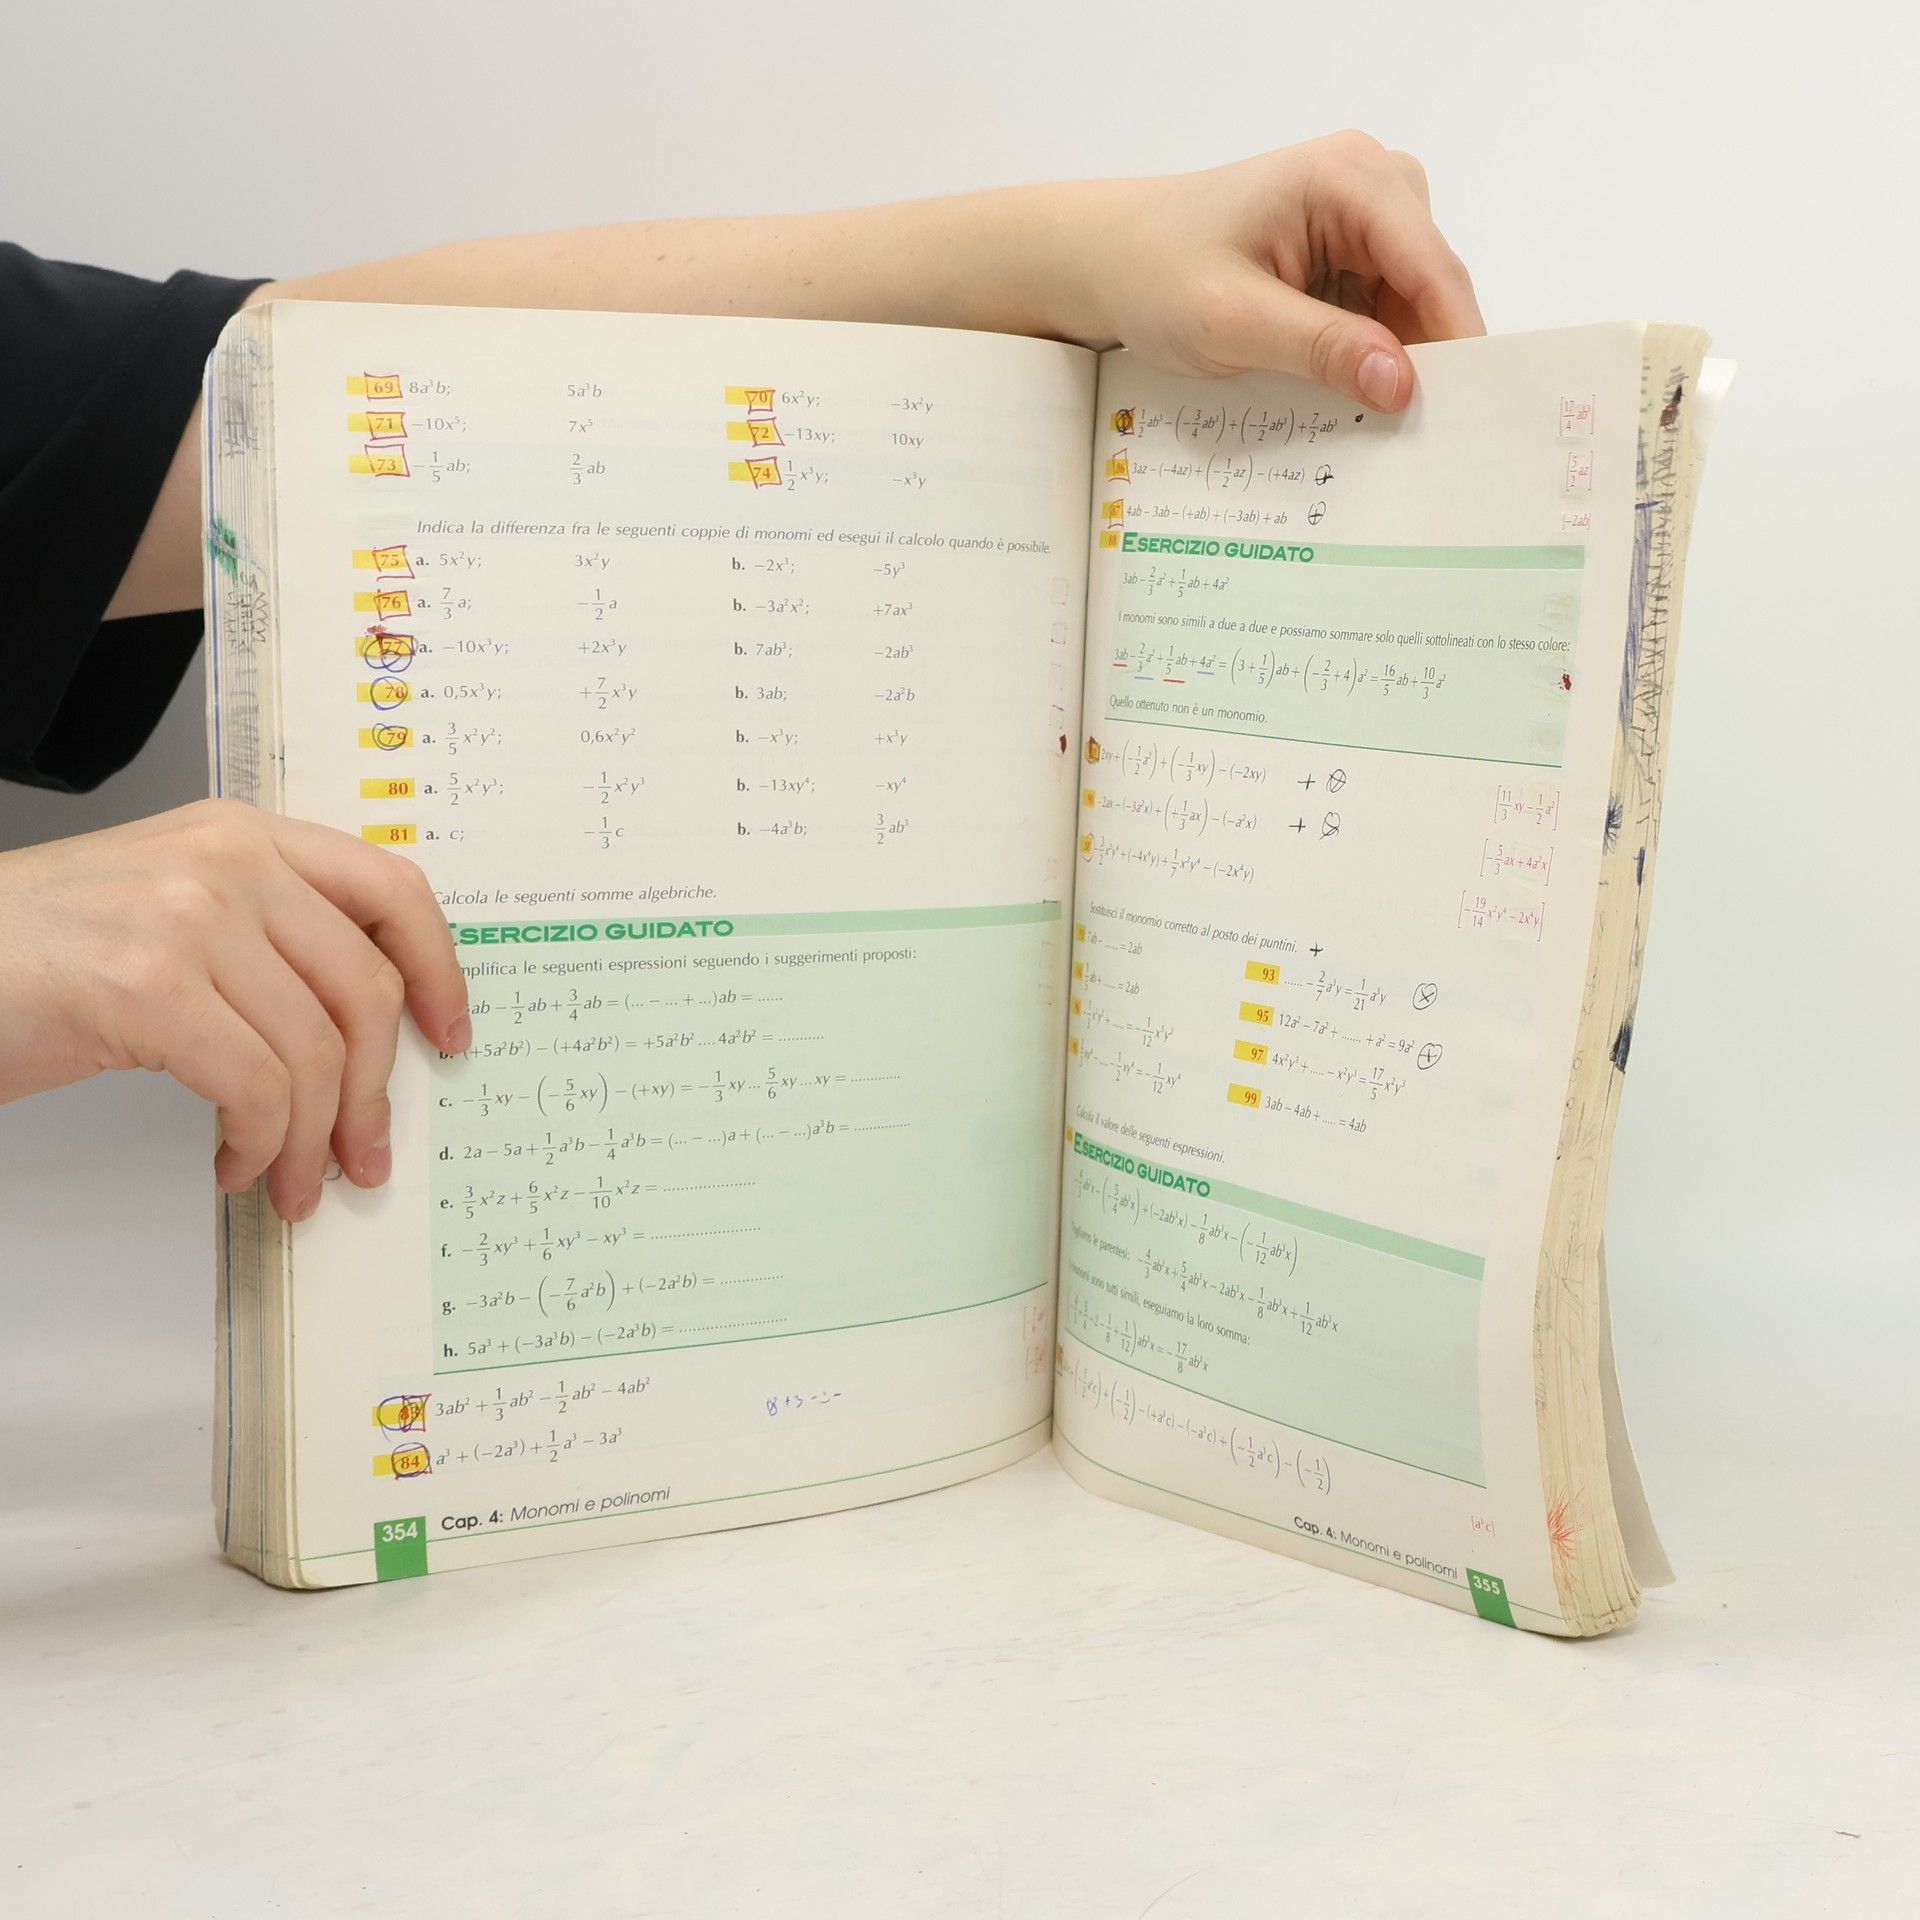 69 8a³b; 5a³b 70 6x²y; −3x²y
71 −10x⁵; 7x⁵ 72 −13xy; 10xy
73 −1/5 ab; 2/3 ab 74 1/2 x³y; −x³y
Indica la differenza fra le seguenti coppie di monomi ed esegui il calcolo quando è possibile.
75 a. 5x²y; 3x²y b. −2x³; −5y³
76 a. 7/3 a; −1/2 a b. −3a²x²; +7ax³
77 a. −10x³y; +2x³y b. 7ab³; −2ab³
78 a. 0,5x³y; +7/2 x³y b. 3ab; −2a²b
79 a. 3/5 x²y²; 0,6x²y² b. −x³y; +x³y
80 a. 5/2 x²y³; −1/2 x²y³ b. −13xy⁴; −xy⁴
81 a. c; −1/3 c b. −4a³b; 3/2 ab³
Calcola le seguenti somme algebriche.
ESERCIZIO GUIDATO
mplifica le seguenti espressioni seguendo i suggerimenti proposti:
ab − 1/2 ab + 3/4 ab = (... − ... + ...)ab = ......
b. (+5a²b²) − (+4a²b²) = +5a²b² .... 4a²b² = ...........
c. −1/3 xy − (−5/6 xy) − (+xy) = −1/3 xy ... 5/6 xy ... xy = ............
d. 2a − 5a + 1/2 a³b − 1/4 a³b = (... − ...)a + (... − ...)a³b = .............
e. 3/5 x²z + 6/5 x²z − 1/10 x²z = .....................
f. −2/3 xy³ + 1/6 xy³ − xy³ = .........................
g. −3a²b − (−7/6 a²b) + (−2a²b) = ..............
h. 5a³ + (−3a³b) − (−2a³b) = ........................
83 3ab² + 1/3 ab² − 1/2 ab² − 4ab²
8+3-3-
84 a³ + (−2a³) + 1/2 a³ − 3a³
354 Cap. 4: Monomi e polinomi
1/2 ab³ − (−3/4 ab³) + (−1/2 ab³) + 7/2 ab³ [17/4 ab³]
86 3az − (−4az) + (−1/2 az) − (+4az) [5/2 az]
87 4ab − 3ab − (+ab) + (−3ab) + ab [−2ab]
88 ESERCIZIO GUIDATO
3ab − 2/3 a² + 1/5 ab + 4a²
I monomi sono simili a due a due e possiamo sommare solo quelli sottolineati con lo stesso colore:
3ab − 2/3 a² + 1/5 ab + 4a² = (3 + 1/5)ab + (−2/3 + 4)a² = 16/5 ab + 10/3 a²
Quello ottenuto non è un monomio.
2xy + (−1/2 a²) + (−1/3 xy) − (−2xy) + [11/3 xy − 1/2 a²]
−2ax − (−3a²x) + (+1/3 ax) − (−a²x) + [−5/3 ax + 4a²x]
−3/2 x²y⁴ + (−4x⁴y) + 1/7 x²y⁴ − (−2x⁴y) [−19/14 x²y⁴ − 2x⁴y]
Sostituisci il monomio corretto al posto dei puntini. +
7ab − ..... = 2ab 93 ...... − 2/7 a³y = 1/21 a³y
ab + ..... = 2ab 95 12a² − 7a² + ....... + a² = 9a²
97 4x²y³ + ..... − x²y³ = 17/5 x²y³
99 3ab − 4ab + ..... = 4ab
Calcola il valore delle seguenti espressioni.
ESERCIZIO GUIDATO
−4/3 ab³x − (−5/4 ab³x) + (−2ab³x) − 1/8 ab³x − (−1/12 ab³x)
Togliamo le parentesi: −4/3 ab³x + 5/4 ab³x − 2ab³x − 1/8 ab³x + 1/12 ab³x
monomi sono tutti simili, eseguiamo la loro somma:
ab³x = −17/8 ab³x
− (+a³c) − (−a³c) + (−1/2 a³c) − (−1/2)
[a³c]
Cap. 4: Monomi e polinomi 355